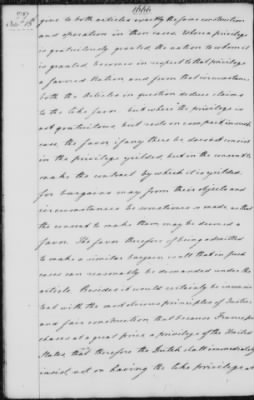 1666
give to both articles exactly the same construction
and operation in their cases. Where a privilege
is gratuitously granted the nation to whom it
is granted becomes in respect to that privilege
a favored Nation and from that circumstance
both the Articles in question deduce claims
to the like favor but where the privilege is
not gratuitous, but rests on compact in such
case, the favor if any there be does not consist
in the privilege yielded, but in the consent to
make the contract by which it is yielded.
for bargains may from their objects and
circumstances be sometimes so made as that
the consent to make them, may be deemed a
favor. The favor therefore of being admitted
to make a similar bargain is all that in such
cases can reasonably be demanded under the
article. Besides it would certainly be inconsis
tent with the most obvious principles of Justice
and fair construction that because France pur
chases at a great price a privilege of the United
States, that therefore the Dutch shall immediately
insist, not on having the like privilege at